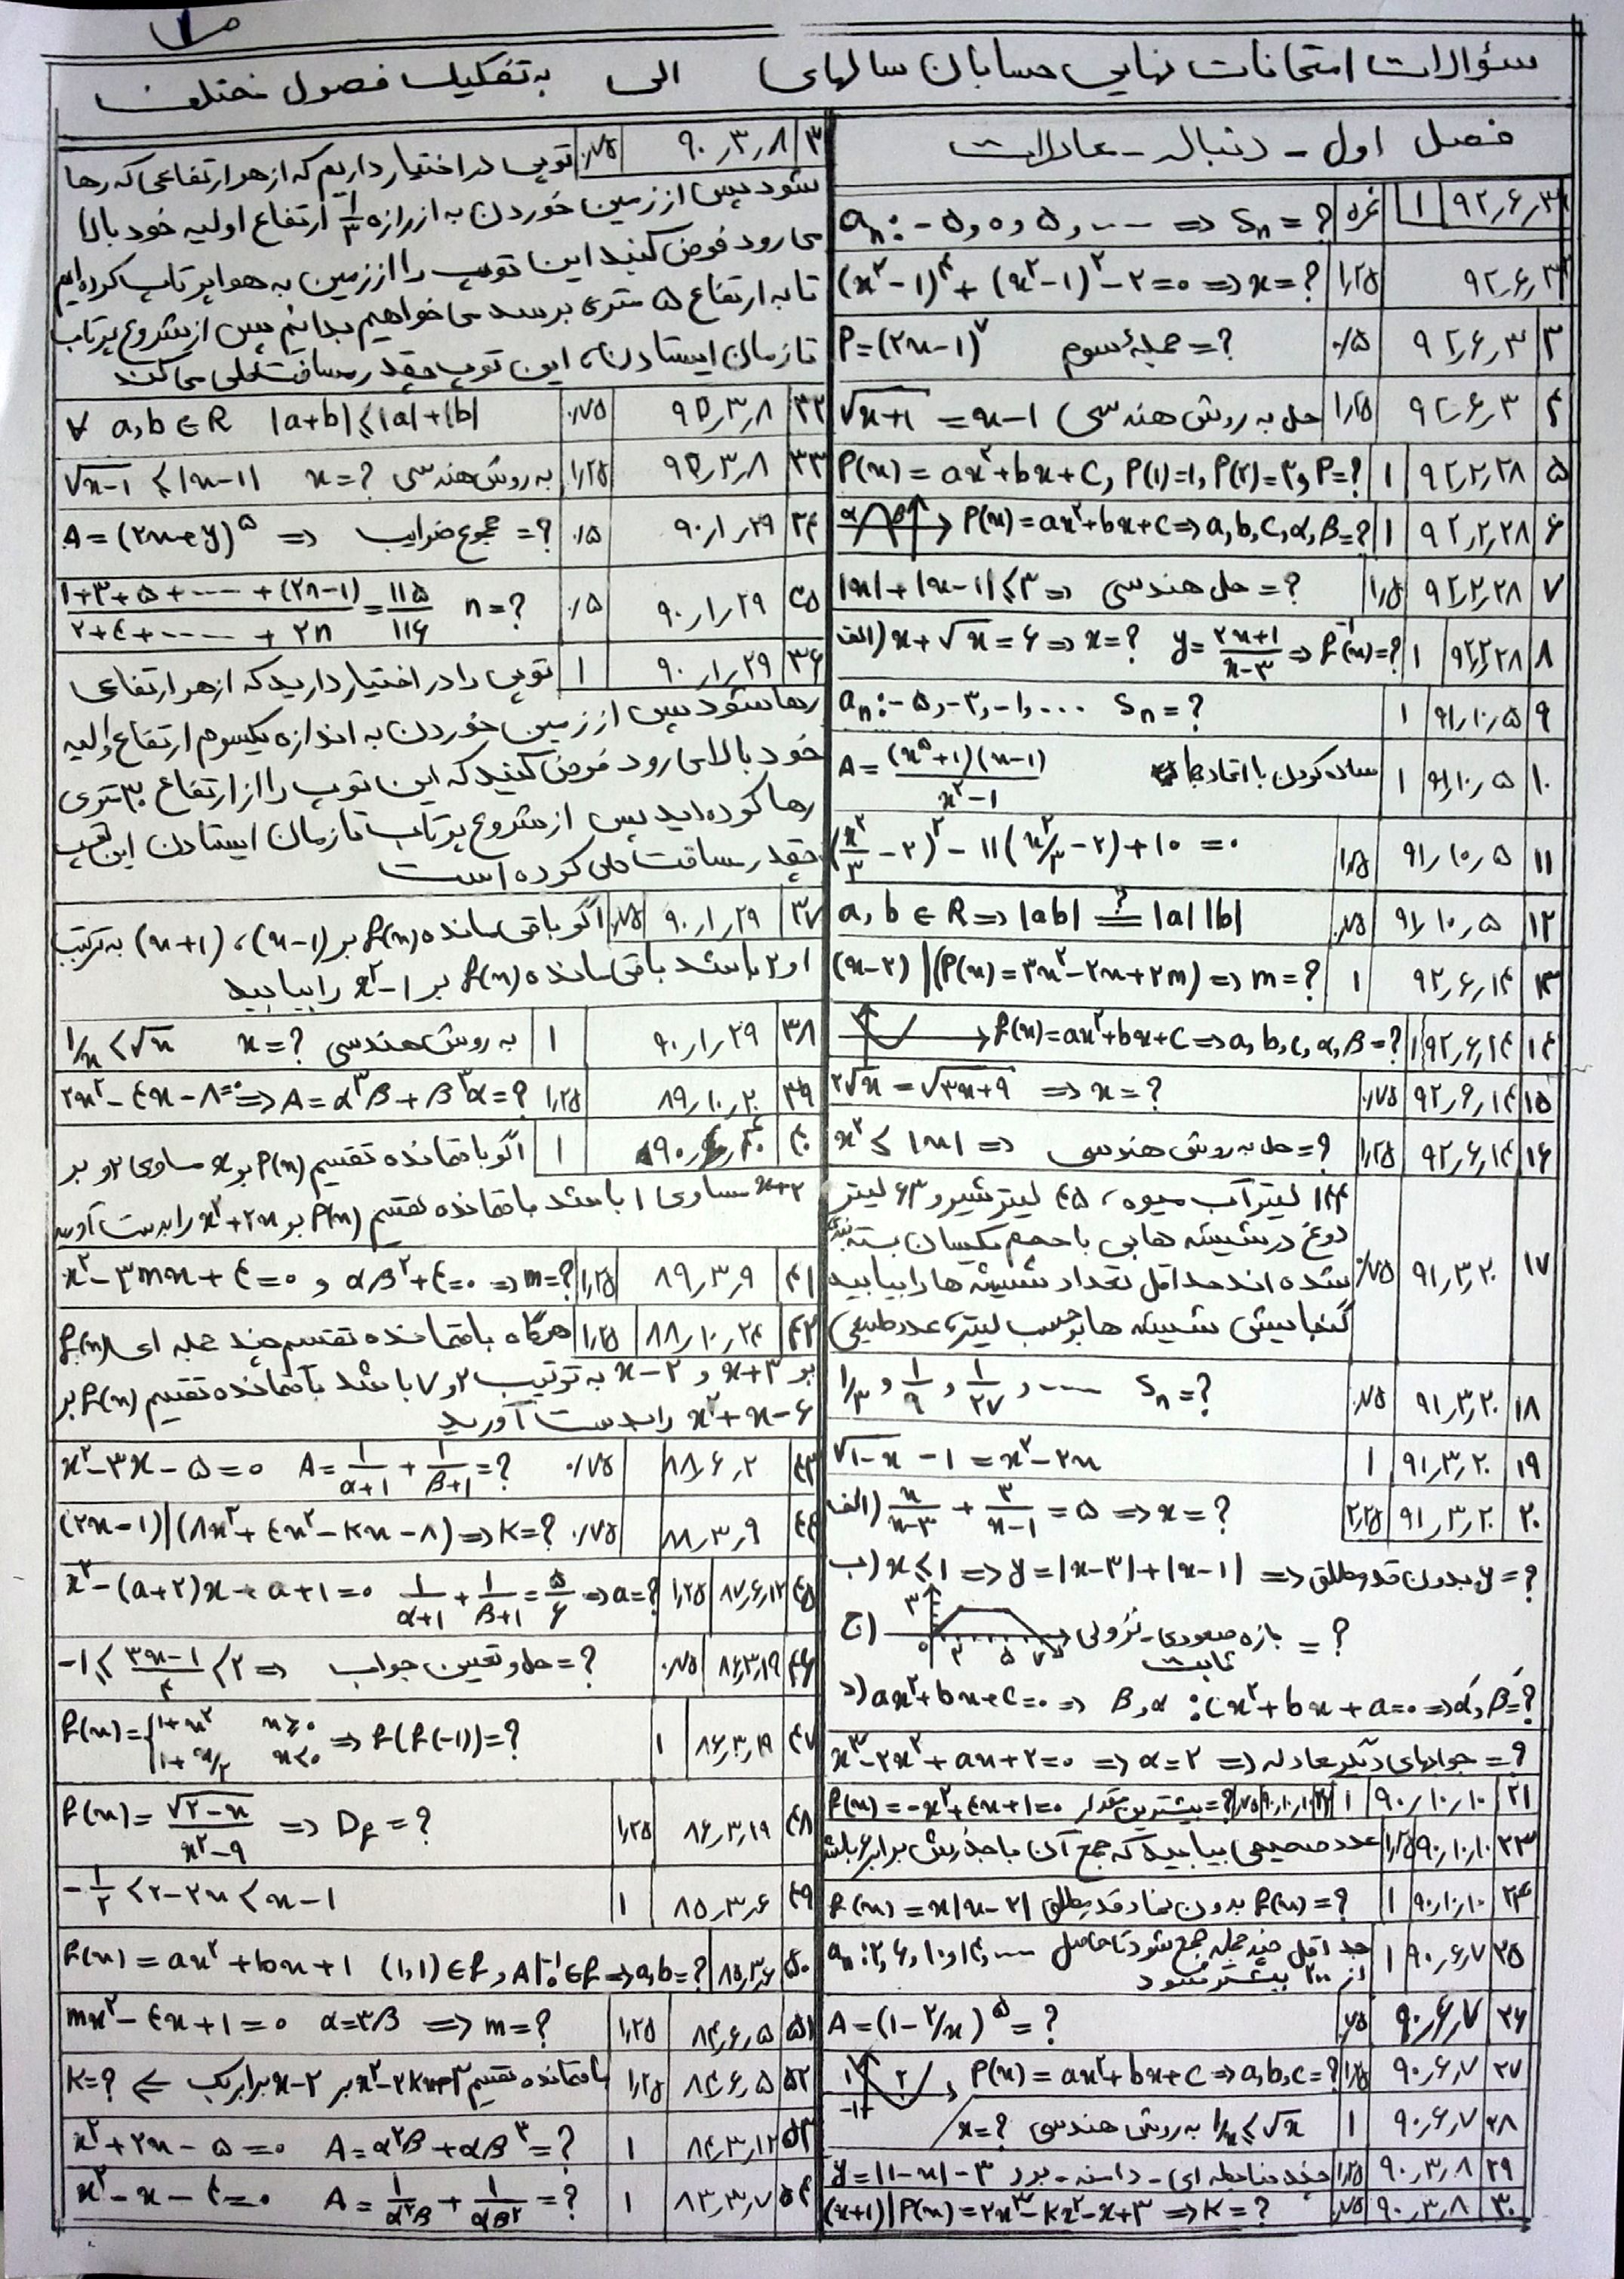 سؤالات امتحانات نهایی حسابان سالهای الی به تفکیک فصول مختلف
فصل اول - دنباله - معادلات
۹۲٫۶٫۳ ۱ نمره aₙ: -۵, ۰, ۵, --- ⇒ Sₙ = ?
۹۲٫۶٫۳ ۱٫۲۵ (x²-۱)⁴ + (x²-۱)² - ۲ = ۰ ⇒ x = ?
۳ ۹۲٫۶٫۳ ۰٫۵ P = (۲x-۱)⁷ جمله سوم = ?
۴ ۹۲٫۶٫۳ ۱٫۲۵ حل به روش هندسی √x+۱ = x-۱
۵ ۹۲٫۲٫۲۸ ۱ P(x) = ax²+bx+c, P(۱)=۱, P(۲)=۳, P=?
۶ ۹۲٫۲٫۲۸ ۱ P(x) = ax²+bx+c ⇒ a, b, c, α, β = ? α β
۷ ۹۲٫۲٫۲۸ ۱٫۵ |x| + |x-۱| ≤ ۳ ⇒ حل هندسی = ?
۸ ۹۲٫۲٫۲۸ ۱ الف) x + √x = ۶ ⇒ x = ? y = ۲x+۱/x-۳ ⇒ f⁻¹(x) = ?
۹ ۹۱٫۱۰٫۵ ۱ aₙ: -۵, -۳, -۱, ... Sₙ = ?
۱۰ ۹۱٫۱۰٫۵ ۱ ساده کردن با اتحادها A = (x⁵+۱)(x-۱)/x²-۱
۱۱ ۹۱٫۱۰٫۵ ۱٫۵ (x²/۳ - ۲)² - ۱۱(x²/۳ - ۲) + ۱۰ = ۰
۱۲ ۹۱٫۱۰٫۵ ۰٫۷۵ a, b ∈ R ⇒ |ab| =? |a| |b|
۱۳ ۹۲٫۶٫۱۴ ۱ (x-۲) | (P(x) = ۳x²-۲x+۲m) ⇒ m = ?
۱۴ ۹۲٫۶٫۱۴ ۱ f(x) = ax²+bx+c ⇒ a, b, c, α, β = ?
۱۵ ۹۲٫۶٫۱۴ ۰٫۷۵ ۲√x = √۳x+۹ ⇒ x = ?
۱۶ ۹۲٫۶٫۱۴ ۱٫۲۵ x² ≤ |x| ⇒ حل به روش هندسی = ?
۱۷ ۹۱٫۳٫۲۰ ۰٫۷۵ ۱۴۴ لیتر آب میوه، ۴۵ لیتر شیر و ۶۳ لیتر
دوغ در شیشه هایی با حجم یکسان بسته بندی
شده اند حداقل تعداد شیشه ها را بیابید
گنجایش شیشه ها بر حسب لیتر، عدد طبیعی
۱۸ ۹۱٫۳٫۲۰ ۰٫۷۵ ۱/۳, ۱/۹, ۱/۲۷, --- Sₙ = ?
۱۹ ۹۱٫۳٫۲۰ ۱ √۱-x - ۱ = x² - ۲x
۲۰ ۹۱٫۳٫۲۰ ۲٫۲۵ الف) x/x-۳ + ۳/x-۱ = ۵ ⇒ x = ?
ب) x ≤ ۱ ⇒ y = |x-۳| + |x-۱| ⇒ y بدون قدر مطلق = ?
ج) ۳ ۰ ۲ ۵ ۷ بازه صعودی - نزولی = ?
ثابت
د) ax²+bx+c=۰ ⇒ β, α : cx²+bx+a=۰ ⇒ α', β' = ?
x³-۲x²+ax+۲=۰ ⇒ α=۲ ⇒ جوابهای دیگر معادله = ?
۲۱ ۹۰٫۱۰٫۱۰ ۱ f(x) = -x²+۴x+۱=۰ بیشترین مقدار = ? ۲۲ ۹۰٫۱۰٫۱۰ ۰٫۷۵
۲۳ ۹۰٫۱۰٫۱۰ ۱٫۲۵ عدد صحیحی بیابید که جمع آن با جذرش برابر ۶ باشد
۲۴ ۹۰٫۱۰٫۱۰ ۱ f(x) = x|x-۲| بدون نماد قدر مطلق f(x) = ?
۲۵ ۹۰٫۶٫۷ ۱ aₙ: ۲, ۶, ۱۰, ۱۴, --- حداقل چند جمله جمع شود تا حاصل
از ۲۰۰ بیشتر شود
۲۶ ۹۰٫۶٫۷ ۰٫۷۵ A = (۱-۲/x)⁵ = ?
۲۷ ۹۰٫۶٫۷ ۱٫۵ P(x) = ax²+bx+c ⇒ a, b, c = ? ۱ ۲ -۱
۲۸ ۹۰٫۶٫۷ ۱ ۱/x ≤ √x به روش هندسی x = ?
۲۹ ۹۰٫۳٫۸ ۱٫۲۵ y = |۱-x| - ۳ چند ضابطه ای - دامنه - برد
۳۰ ۹۰٫۳٫۸ ۰٫۷۵ (x+۱) | P(x) = ۲x³-kx²-x+۳ ⇒ k = ?
۳ ۹۰٫۳٫۸ ۰٫۷۵ توپی در اختیار داریم که از هر ارتفاعی که رها
شود پس از زمین خوردن به اندازه ۱/۳ ارتفاع اولیه خود بالا
می رود فرض کنید این توپ را از زمین به هوا پرتاب کرده ایم
تا به ارتفاع ۵ متری برسد می خواهیم بدانیم پس از شروع پرتاب
تا زمان ایستادن، این توپ چقدر مسافت طی می کند
۳۲ ۹۰٫۳٫۸ ۰٫۷۵ ∀ a, b ∈ R |a+b| ≤ |a|+|b|
۳۳ ۹۰٫۳٫۸ ۱٫۲۵ √x-۱ ≤ |x-۱| به روش هندسی x = ?
۳۴ ۹۰٫۱٫۲۹ ۰٫۵ A = (۲x+y)⁵ ⇒ مجموع ضرایب = ?
۳۵ ۹۰٫۱٫۲۹ ۰٫۵ ۱+۳+۵+----+(۲n-۱)/۲+۴+----+۲n = ۱۱۵/۱۱۶ n = ?
۳۶ ۹۰٫۱٫۲۹ ۱ توپی را در اختیار دارید که از هر ارتفاعی
رها شود پس از زمین خوردن به اندازه یکسوم ارتفاع اولیه
خود بالا می رود فرض کنید که این توپ را از ارتفاع ۳۰ متری
رها کرده اید پس از شروع پرتاب تا زمان ایستادن این توپ
چقدر مسافت طی کرده است
۳۷ ۹۰٫۱٫۲۹ ۰٫۷۵ اگر باقی مانده f(x) بر (x-۱)، (x+۱) به ترتیب
۱ و ۲ باشد باقی مانده f(x) بر x²-۱ را بیابید
۳۸ ۹۰٫۱٫۲۹ ۱ به روش هندسی ۱/x < √x x = ?
۳۹ ۸۹٫۱۰٫۲۰ ۱٫۲۵ ۲x²-۴x-۸=۰ ⇒ A = α³β + β³α = ?
۴۰ ۱ اگر باقیمانده تقسیم P(x) بر x مساوی ۲ و بر
x+۲ مساوی ۱ باشد باقیمانده تقسیم P(x) بر x²+۲x را بدست آورید
۴۱ ۸۹٫۳٫۹ ۱٫۲۵ x²-۳mx+۴=۰ و αβ²+۴=۰ ⇒ m = ?
۴۲ ۸۸٫۱۰٫۲۴ ۱٫۲۵ هرگاه باقیمانده تقسیم چند جمله ای f(x)
بر x+۳ و x-۲ به ترتیب ۲ و ۷ باشد باقیمانده تقسیم f(x) بر
x²+x-۶ را بدست آورید
۴۳ ۸۸٫۶٫۲ ۰٫۷۵ x²-۳x-۵=۰ A = ۱/α+۱ + ۱/β+۱ = ?
۴۴ ۸۸٫۳٫۹ ۰٫۷۵ (۲x-۱) | (۸x³+۴x²-kx-۸) ⇒ k = ?
۴۵ ۸۷٫۶٫۱۲ ۱٫۲۵ x²-(a+۲)x+a+۱=۰ ۱/α+۱ + ۱/β+۱ = ۵/۶ ⇒ a = ?
۴۶ ۸۶٫۳٫۱۹ ۰٫۷۵ -۱ ≤ ۳x-۱/۴ < ۲ ⇒ حل و تعیین جواب = ?
۴۷ ۸۶٫۳٫۱۹ ۱ f(x) = { ۱+x² x≥۰ ⇒ f(f(-۱)) = ?
۱+x/۲ x<۰
۴۸ ۸۶٫۳٫۱۹ ۱٫۲۵ f(x) = √۲-x/x²-۹ ⇒ Df = ?
۴۹ ۸۵٫۳٫۶ ۱ -۱/۲ < ۲-۲x < x-۱
۵۰ ۸۵٫۳٫۶ f(x) = ax²+bx+۱ (۱,۱) ∈ f, A|-۱ ۰ ∈ f ⇒ a, b = ?
۵۱ ۸۴٫۶٫۵ ۱٫۲۵ mx²-۴x+۱=۰ α=۳β ⇒ m = ?
۵۲ ۸۴٫۶٫۵ ۱٫۲۵ باقیمانده تقسیم x²-۲kx+۳ بر x-۲ برابر یک ⇐ k = ?
۵۳ ۸۴٫۳٫۱۲ ۱ x²+۲x-۵=۰ A = α³β + αβ³ = ?
۵۴ ۸۳٫۳٫۷ ۱ x²-x-۴=۰ A = ۱/α²β + ۱/αβ² = ?